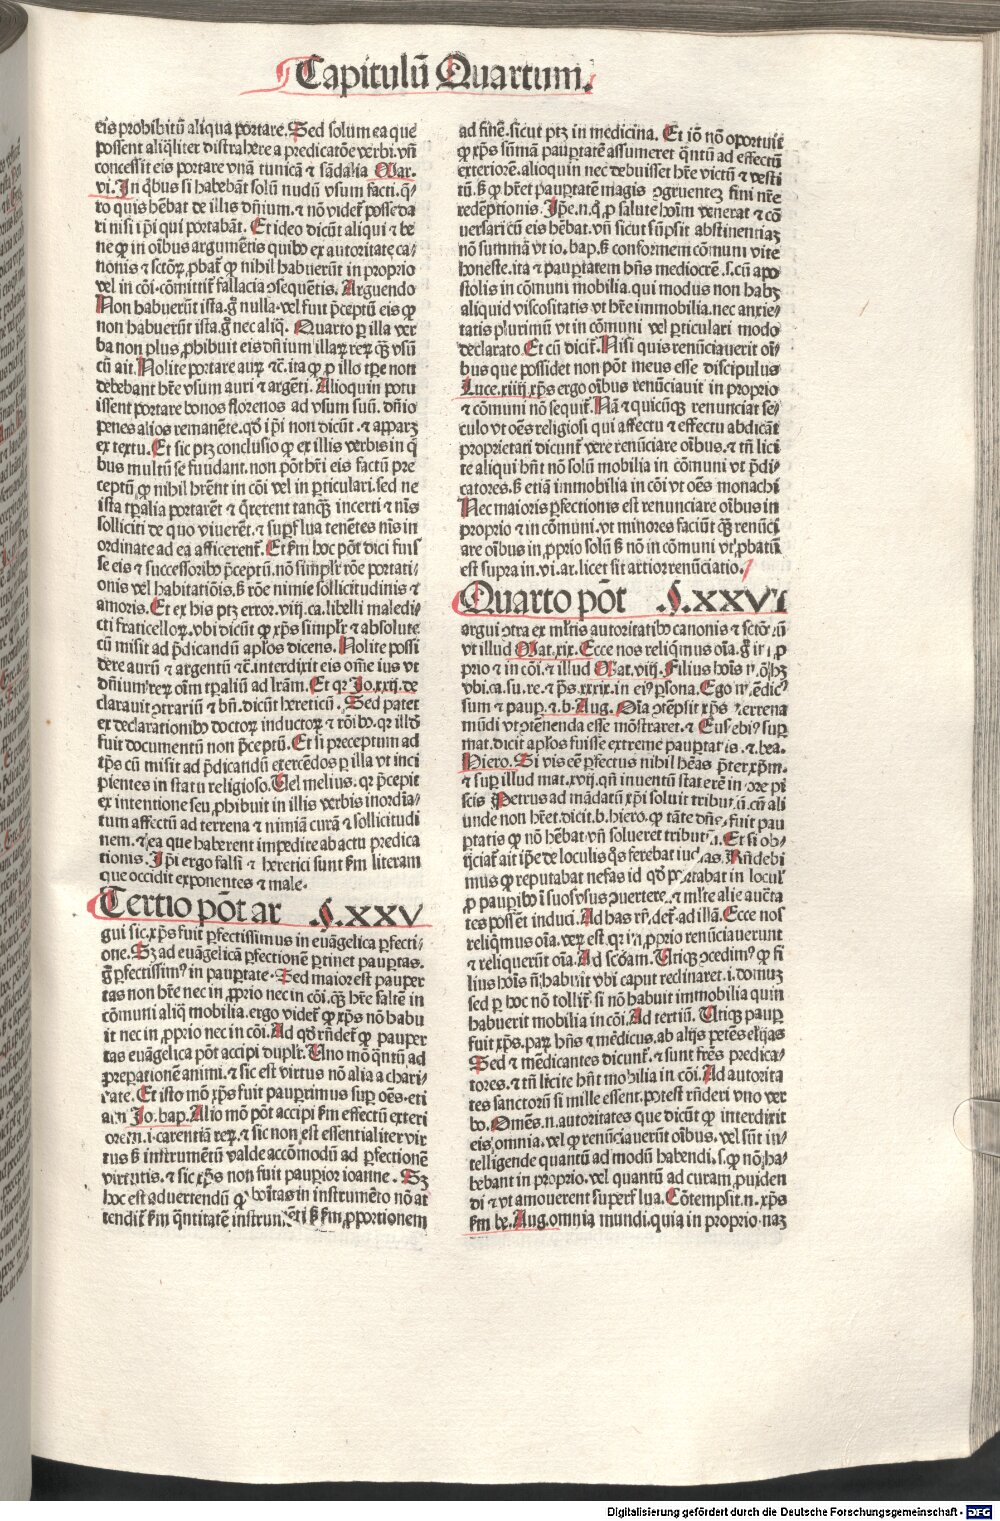 Capitulū Quartum.
eis prohibitū aliqua portare. Sed solum ea que
possent aliqͣliter distrahere a predicatōe verbi. vñ
concessit eis portare vnā tunicā ⁊ sādalia Mar.
vi. In qͥbus si habebāt solū nudū vsum facti. qͣ⸗
to quis hēbat de illis dñium. ⁊ nō videt᷑ posse da
ri nisi ip̄i qui portabāt. Et ideo dicūt aliqui ⁊ be
ne ꝙ in oībus argumētis quibꝰ ex autoritate ca⸗
nonis ⁊ sctōꝝ ꝓbat᷑ ꝙ nihil habuerūt in proprio
vel in cōi. cōmittit᷑ fallacia ꝯsequētis. Arguendo
Non habuerūt ista. gͦ nulla. vel fuit p̄ceptū eis ꝙ
non habuerūt ista. gͦ nec aliqͣ. Quarto ꝑ illa ver
ba non plus ꝓhibuit eis dñium illaꝝ reꝝ qͣꝫ vsū
cū ait. Nolite portare auꝝ ⁊c̄. ita ꝙ ꝑ illo tp̄e non
debebant hr̄e vsum auri ⁊ argēti. Alioquin potu
issent portare bonos florenos ad vsum suū. dn̄io
penes alios remanēte. qd̄ ip̄i non dicūt. ⁊ apparꝫ
ex textu. Et sic ptꝫ conclusio ꝙ ex illis verbis in qͥ
bus multū se fundant. non pōt hr̄i eis factū pre
ceptū ꝙ nihil hr̄ent in cōi vel in ꝑticulari. sed ne
ista tꝑalia portarēt ⁊ qͣrerent tanqͣꝫ incerti ⁊ nīs
solliciti de quo viuerēt. ⁊ suꝑflua tenētes nīs in
ordinate ad ea afficerent᷑. Et ẜm hoc pōt dici fuis
se eis ⁊ successoribꝰ p̄ceptū. nō simpl̄r rōe portati⸗
onis vel habitatiōis. ẜꝫ rōe nimie sollicitudinis ⁊
amoris. Et ex his ptꝫ error. viij. ca. libelli maledi⸗
cti fraticelloꝝ. vbi dicūt ꝙ xp̄s simpl̄r ⁊ absolute
cū misit ad p̄dicandū apl̄os dicens. Nolite possi
dere aurū ⁊ argentū ⁊c̄. interdixit eis om̄e ius vt
dn̄ium reꝝ oīm tꝑaliū ad lr̄am. Et qꝛ Jo. xxij. de
clarauit ꝯtrariū ⁊ bn̄. dicūt hereticū. Sed patet
ex declarationibꝰ doctoꝝ inductoꝝ ⁊ rōibꝰ. qꝛ illd̄
fuit documentū non p̄ceptū. Et si preceptum ad
tp̄s cū misit ad p̄dicandū exercēdos ꝑ illa vt inci
pientes in statu religioso. Vel melius. qꝛ p̄cepit
ex intentione seu ꝓhibuit in illis verbis inordīa⸗
tum affectū ad terrena ⁊ nimiā curā ⁊ sollicitudi
nem. ⁊ ea que haberent impedite ab actu predica
tionis. Ip̄i ergo falsi ⁊ heretici sunt ẜm literam
que occidit exponentes ⁊ male.
Tertio pōt ar §. XXV
gui sic. xp̄s fuit ꝑfectissimus in euāgelica ꝑfecti⸗
one. Sꝫ ad euāgelicā ꝑfectionē ꝑtinet pauꝑtas.
gͦ ꝑfectissimꝰ in pauꝑtate. Sed maior est pauper
tas non hr̄e nec in ꝓprio nec in cōi. qͣꝫ hr̄e saltē in
cōmuni aliqͣ mobilia. ergo videt᷑ ꝙ xp̄s nō habu
it nec in ꝓprio nec in cōi. Ad qd̄ rn̄det᷑ ꝙ pauper
tas euāgelica pōt accipi dupl̄r. Vno mō qͣntū ad
p̄reparationē animi. ⁊ sic est virtus nō alia a chari⸗
tate. Et isto mō xp̄s fuit pauꝑrimus suꝑ oēs. eti
am Jo. bap. Alio mō pōt accipi ẜm effectū exteri
orem. i. carentiā reꝝ. ⁊ sic non est essentialiter vir
tus ẜꝫ instrumētū valde accōmodū ad ꝑfectionē
virtutis. ⁊ sic xp̄s non fuit pauꝑior ioanne. Sꝫ
hoc est aduertendū ꝙ bōitas in instrumēto nō at
tendit᷑ ẜm qͣntitatē instrumēti ẜꝫ ẜm ꝓportionem
ad finē. sicut ptꝫ in medicina. Et iō nō oportuit
ꝙ xp̄s sūmā pauꝑtatē assumeret qͣntū ad effectū
exteriorē. alioquin nec debuisset hr̄e victū ⁊ vesti
tū. ẜꝫ ꝙ hr̄et pauꝑtatē magis ꝯgruentez fini nr̄e
redēptionis. Ip̄e. n. qͥ ꝓ salute hoīm venerat ⁊ cō
uersari cū eis hēbat. vñ sicut sūpsit abstinentiaz
nō summā vt io. bap. ẜꝫ conformem cōmuni vite
honeste. ita ⁊ pauꝑtatem hn̄s mediocrē. s. cū apo
stolis in cōmuni mobilia. qui modus non habꝫ
aliquid viscositatis vt hr̄e immobilia. nec anxie⸗
tatis plurimū vt in cōmuni vel ꝑticulari modo
declarato. Et cū dicit᷑. Nisi quis renūciauerit oī⸗
bus que possidet non pōt meus esse discipulus
Luce. xiiij. xp̄s ergo oībus renūciauit in proprio
⁊ cōmuni nō sequit᷑. Nā ⁊ quicūqꝫ renunciat se⸗
culo vt oēs religiosi qui affectu ⁊ effectu abdicāt
proprietati dicunt᷑ vere renūciare oībus. ⁊ tn̄ lici
te aliqui hn̄t nō solū mobilia in cōmuni vt p̄di⸗
catores. ẜꝫ etiā immobilia in cōi vt oēs monachi
Nec maioris ꝑfectionis est renunciare oībus in
proprio ⁊ in cōmuni. vt minores faciūt qͣꝫ renūci
are oībus in ꝓprio solū ẜꝫ nō in cōmuni vt ꝓbatū
est supra in. vi. ar. licet sit artior renūciatio.
Quarto pōt §. XXVI
argui ꝯtra ex ml̄tis autoritatibꝰ canonis ⁊ sctōꝝ
vt illud Mat. xix. Ecce nos reliqͥmus oīa. gͦ in ꝓ
prio ⁊ in cōi. ⁊ illud Mat. viij. Filius hoīs nō hꝫ
vbi ca. su. re. ⁊ p̄s. xxxix. in eiꝰ ꝑsona. Ego mēdicꝰ
sum ⁊ pauꝑ. ⁊. b. Aug. Oīa ꝯtēpsit xp̄s terrena
mūdi vt ꝯtēnenda esse mōstraret. ⁊ Eusebiꝰ suꝑ
mat. dicit apl̄os fuisse extreme pauꝑtatis. ⁊ bea.
Hiero. Si vis eē ꝑfectus nihil hēas p̄ter xp̄m.
⁊ suꝑ illud mat. xvij. qn̄ inuentū staterē in ore pi
scis Petrus ad mādatū xp̄i soluit tributū. cū ali
unde non hr̄et. dicit. b. hiero. ꝙ tāte dn̄s fuit pau
ꝑtatis ꝙ nō hēbat vn̄ solueret tributū. Et si ob⸗
ijciat᷑ ait ip̄e de loculis qͦs ferebat iudas. Rn̄debi
mus ꝙ reputabat nefas id qd̄ portabatin loculꝭ
ꝓ pauꝑibꝰ ī suos vsus ꝯuertere. ⁊ ml̄te alie aucta
tes possēt induci. Ad has rn̄det᷑. ad illā. Ecce nos
reliqͥmus oīa. veꝝ est. qꝛ in ꝓprio renūciauerunt
⁊ reliquerūt oīa. Ad scd̄am. Vtiqꝫ ꝯcedimꝰ ꝙ fi
lius hoīs nō habuit vbi caput reclinaret. i. domuz
sed ꝑ hoc nō tollit᷑. si nō habuit immobilia quin
habuerit mobilia in cōi. Ad tertiū. Vtiqꝫ pauꝑ
fuit xp̄s. paꝝ hn̄s ⁊ mēdicus. ab alijs petēs elijas
Sed ⁊ mēdicantes dicunt᷑. ⁊ sunt fr̄es predica⸗
tores. ⁊ tn̄ licite hn̄t mobilia in cōi. Ad autorita
tes sanctorū si mille essent. potest rn̄deri vno ver
bo. Omēs. n. autoritates que dicūt ꝙ interdixit
eis omnia. vel ꝙ renūciauerūt oībus. vel sūt in⸗
telligende quantū ad modū habendi. s. ꝙ nō ha⸗
bebant in proprio. vel quantū ad curam ꝓuiden
di ⁊ vt amouerent superflua. Cōtempsit. n. xp̄s
ẜm be. Aug. omnia mundi. quia in proprio naꝫ
Digitalisierung gefördert durch die Deutsche Forschungsgemeinschaft - DFG